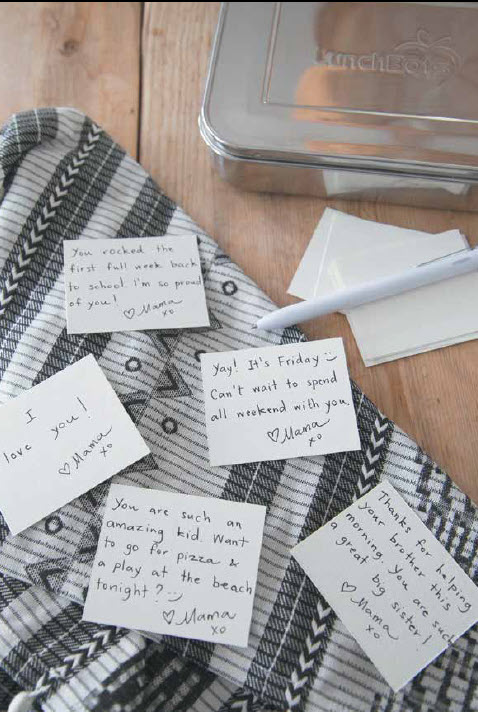 LunchBots
You rocked the
first full week back
to school. i'm so proud
of you!
♡Mama
xo
Yay! It's Friday :)
Can't wait to spend
all weekend with you
♡Mama
xo
I
love you!
♡Mama
xo
You are such an
amazing kid. Want
to go for pizza &
a play at the beach
tonight? :)
♡Mama
xo
Thanks for helping
your brother this
morning. You are such
a great big sister!
♡Mama
xo